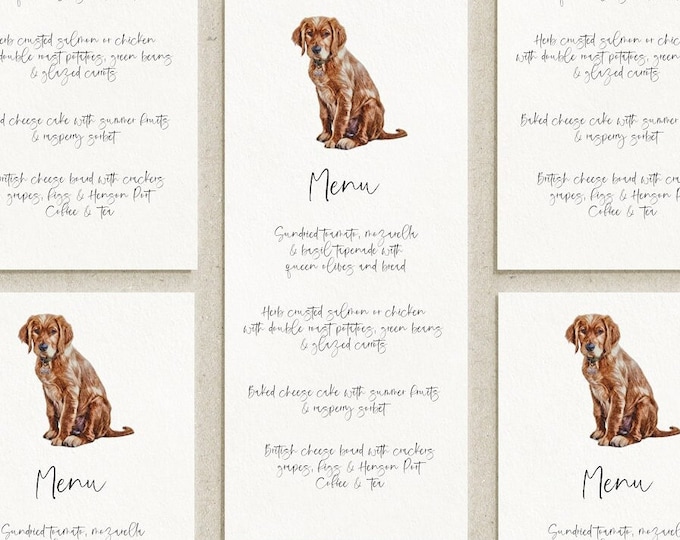 Herb crusted salmon or chicken
double roast potatoes, green beans
& glazed carrots
cheese cake with summer fruits
& rasperry sorbet
British cheese board with crackers
grapes, figs & Henson Port
Coffee & Tea
Menu
Sundried toamato, mozarella
Menu
Sundried toamato, mozarella
& basil tapenade with
queen olives and bread
Herb crusted salmon or chicken
with double roast potatoes, green beans
& glazed carrots
Baked cheese cake with summer fruits
& rasperry sorbet
British cheese board with crackers
grapes, figs & Henson Port
Coffee & Tea
Herb crusted salmon or chicken
with double roast potatoes, green
& glazed carrots
Baked cheese cake with summer
& rasperry sorbet
British cheese board with crackers
grapes, figs & Henson Port
Coffee & Tea
Menu
Sundried toamato, mozarella